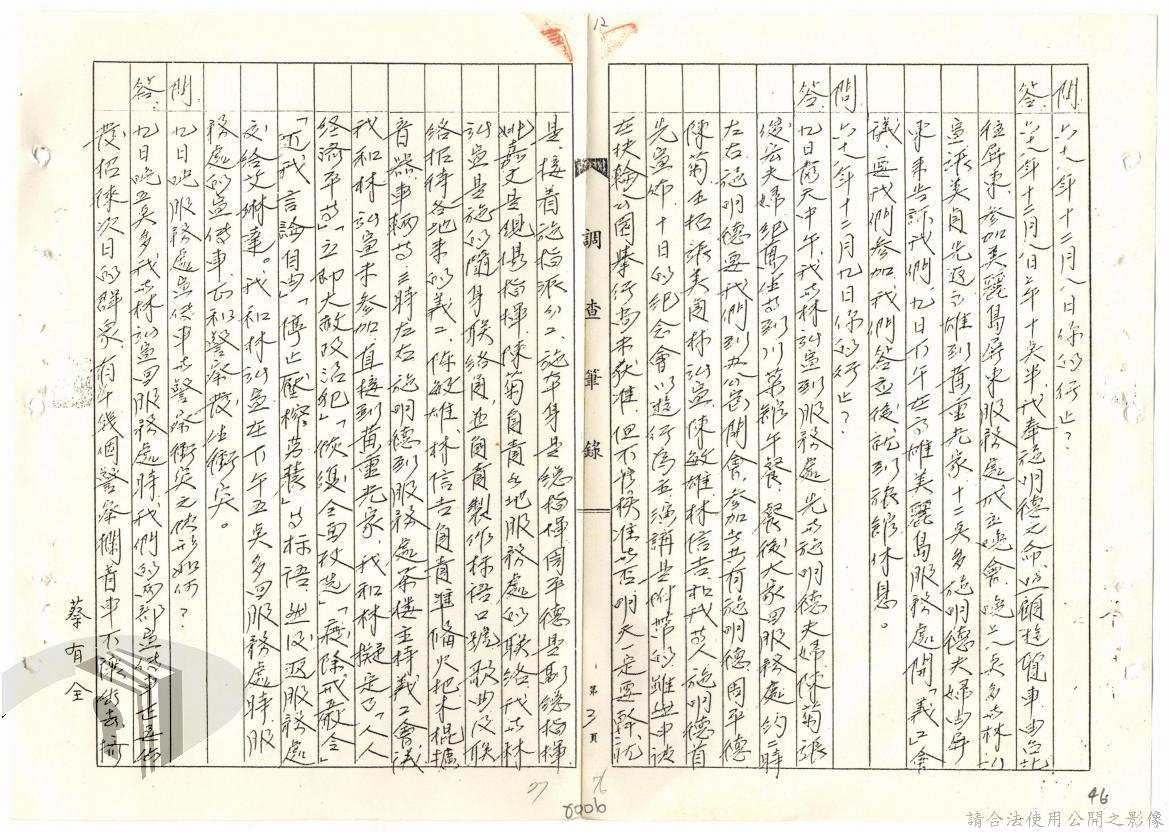 問 六十八年十二月八日你的行止？
答 六十八年十二月八日上午十點半我奉施明德之命
往屏東參加美麗島屏東服務處成立晚會，晚上
宣張美貞先返高雄到黃重光家，十二點多施明德夫婦由屏
東來告訴我們九日下午在高雄美麗島服務處開「義工會
議」要我們參加我們答應後就到旅館休息。
問 六十八年十二月九日你的行止？
答 九日前天中午我與林弘宣到服務處先與施明德夫婦、陳菊、張
俊宏夫婦、紀萬生等到川菜館午餐，餐後大家回服務處約二時
左右，施明德要我們到辦公室開會，參加者共有施明德、周平德
陳菊、王拓、張美貞、林弘宣、陳敏雄、林信吉和我等人，施明德首
先宣佈，十日的紀念會以遊行為主演講是附帶的，雖然申請
在扶輪公園舉行尚未獲准，但不管獲准與否，明天一定要幹，就
是，接着施指派分工，施本身是總指揮，周平德是副總指揮
姚嘉文是總領指揮，陳菊負責各地服務處的聯絡，我與林
弘宣是施的隨身聯絡員，並負責製作標語口號歌曲及聯
絡招待各地來的義工，陳敏雄、林信吉負責準備火把木棍擴
音器、車輛等，三時左右施明德到服務處茶樓主持義工會議
我和林弘宣未參加，直接到黃重光家，我和林擬定了「人人
經濟平等」「立即大赦政治犯」「恢復全面改選」「廢除戒嚴令」
「還我言論自由」「停止壓榨勞農」等标語，並及返服務處
交給艾琳達。我和林弘宣在下午五點多回服務處時，服
務處的宣傳車，正和警察發生衝突。
問 九日晚服務處宣傳車與警察衝突之情形如何？
答 九日晚五點多，我與林弘宣回服務處時，我們的兩部宣傳車
發招徠次日的群眾，有十幾個警察攔着車不准
蔡有全
調查筆錄
第3頁
12
27
76
0006
46
請合法使用公開之影像